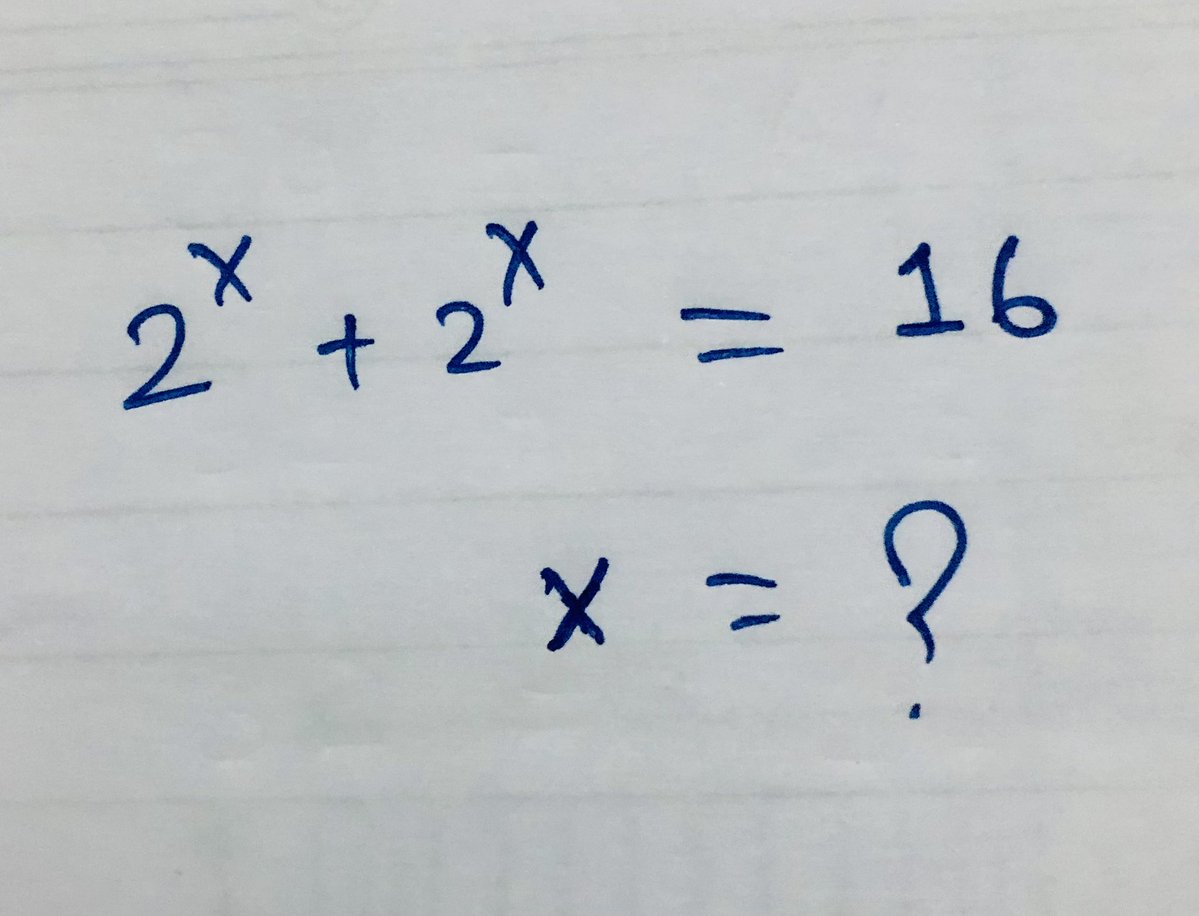 2ˣ + 2ˣ = 16
x = ?